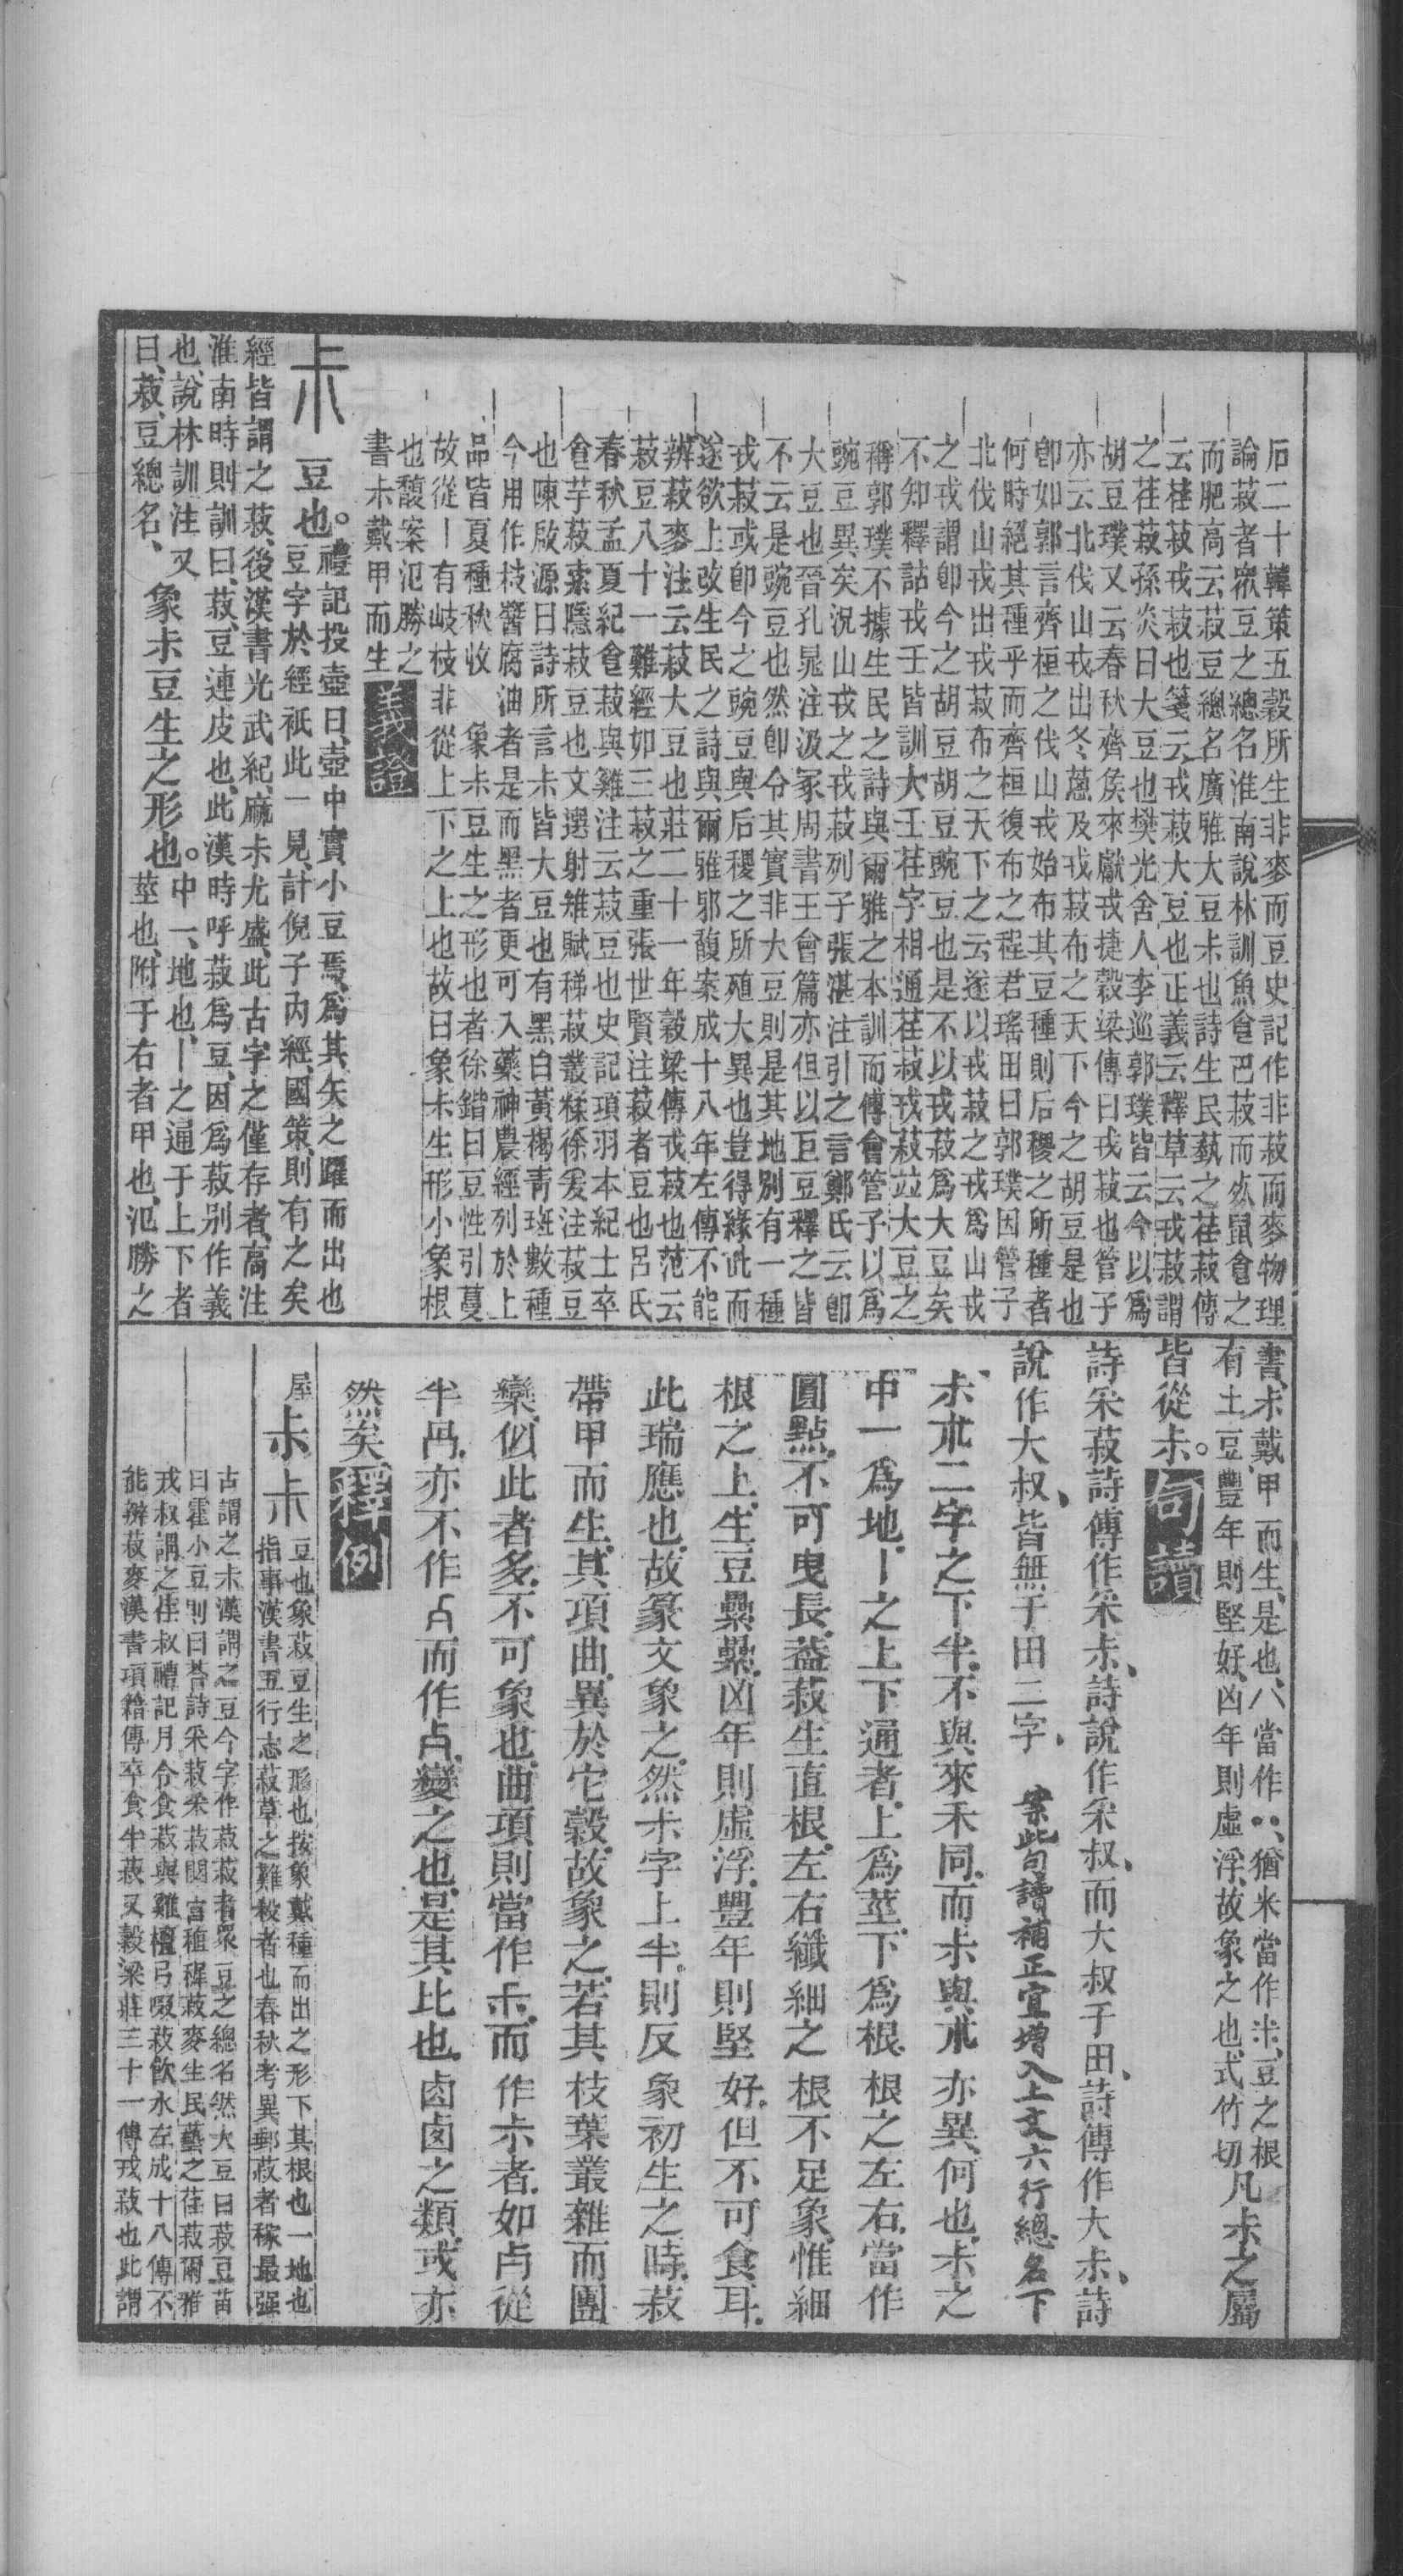 后二十韓策五穀所生非麥而豆史記作非菽而麥物理
論菽者眾豆之總名淮南說林訓魚食巴菽而㱙鼠食之
而肥高云菽豆總名廣雅大豆尗也詩生民蓺之荏菽傳
云荏菽戎菽也箋云戎菽大豆也正義云釋草云戎菽謂
之荏菽孫炎曰大豆也樊光舍人李巡郭璞皆云今以爲
胡豆璞又云春秋齊侯來獻戎捷穀梁傳曰戎菽也管子
亦云北伐山戎出冬蔥及戎菽布之天下今之胡豆是也
卽如郭言齊桓之伐山戎始布其豆種則后稷之所種者
何時絕其種乎而齊桓復布之程君瑤田曰郭璞因管子
北伐山戎出戎菽布之天下之云遂以戎菽之戎爲山戎
之戎謂卽今之胡豆胡豆豌豆也是不以戎菽爲大豆矣
不知釋詁戎壬皆訓大壬荏字相通荏菽戎菽竝大豆之
稱郭璞不據生民之詩與爾雅之本訓而傅會管子以爲
豌豆異矣況山戎之戎菽列子張湛注引之言鄭氏云卽
大豆也晉孔晁注汲冢周書王會篇亦但以巨豆釋之皆
不云是豌豆也然卽令其實非大豆則是其地別有一種
戎菽或卽今之豌豆與后稷之所殖大異也豈得緣此而
遂欲上改生民之詩與爾雅邪馥案成十八年左傳不能
辨菽麥注云菽大豆也莊三十一年穀梁傳戎菽也范云
菽豆八十一難經如三菽之重張世賢注菽者豆也呂氏
春秋孟夏紀食菽與雞注云菽豆也史記項羽本紀士卒
食芋菽索隱菽豆也文選射雉賦稊菽叢糅徐爰注菽豆
也陳啟源曰詩所言尗皆大豆也有黑白黃褐青斑數種
今用作枝醬腐油者是而黑者更可入藥神農經列於上
品皆夏種秋收　象尗豆生之形也者徐鍇曰豆性引蔓
故從丨有岐枝非從上下之上也故曰象尗生形小象根
也馥案氾勝之
書尗戴甲而生義證
尗　豆也。禮記投壺曰、壺中實小豆焉、爲其矢之躍而出也
豆字於經祇此一見、計倪子內經、國策、則有之矣
經皆謂之菽、後漢書光武紀、麻尗尤盛、此古字之僅存者、高注
淮南時則訓曰、菽、豆連皮也、此漢時呼菽爲豆、因爲菽別作義
也、說林訓注、又
曰、菽、豆總名、象尗豆生之形也。中一、地也、丨之通于上下者
莖也、附于右者甲也、氾勝之
書、尗戴甲而生、是也、八當作⺀、猶米當作米、豆之根
有土豆、豐年則堅好、凶年則虛浮、故象之也、式竹切
凡尗之屬
皆從尗。句讀
詩采菽、詩傳作采尗、詩說作采叔、而大叔于田、詩傳作大尗、詩
說作大叔、皆無于田二字、案此句讀補正宜增入上文六行總名下
尗朮二字之下半、不與來禾同、而尗與朮亦異、何也、尗之
中一爲地、丨之上下通者、上爲莖、下爲根、根之左右、當作
圓點、不可曳長、蓋菽生直根、左右纖細之根不足象、惟細
根之上、生豆纍纍、凶年則虛浮、豐年則堅好、但不可食耳、
此瑞應也、故篆文象之、然尗字上半、則反象初生之時、菽
帶甲而生、其項曲、異於它穀、故象之、若其枝葉叢雜而團
欒、似此者多、不可象也、曲項則當作尗、而作尗者、如卢從
半冎、亦不作卢而作占、變之也、是其比也、卥卥之類、或亦
然矣釋例
屋　尗尗　豆也象菽豆生之形也按象戴種而出之形下其根也一地也
指事漢書五行志菽草之難殺者也春秋考異郵菽者稼最強
古謂之尗漢謂之豆今字作菽菽者眾豆之總名然大豆曰菽豆苗
曰霍小豆則曰荅詩采菽采菽閟宮稙穉菽麥生民蓺之荏菽爾雅
戎叔謂之荏叔禮記月令食菽與雞檀弓啜菽飮水左成十八傳不
能辨菽麥漢書項籍傳卒食半菽又穀梁莊三十一傳戎菽也此謂